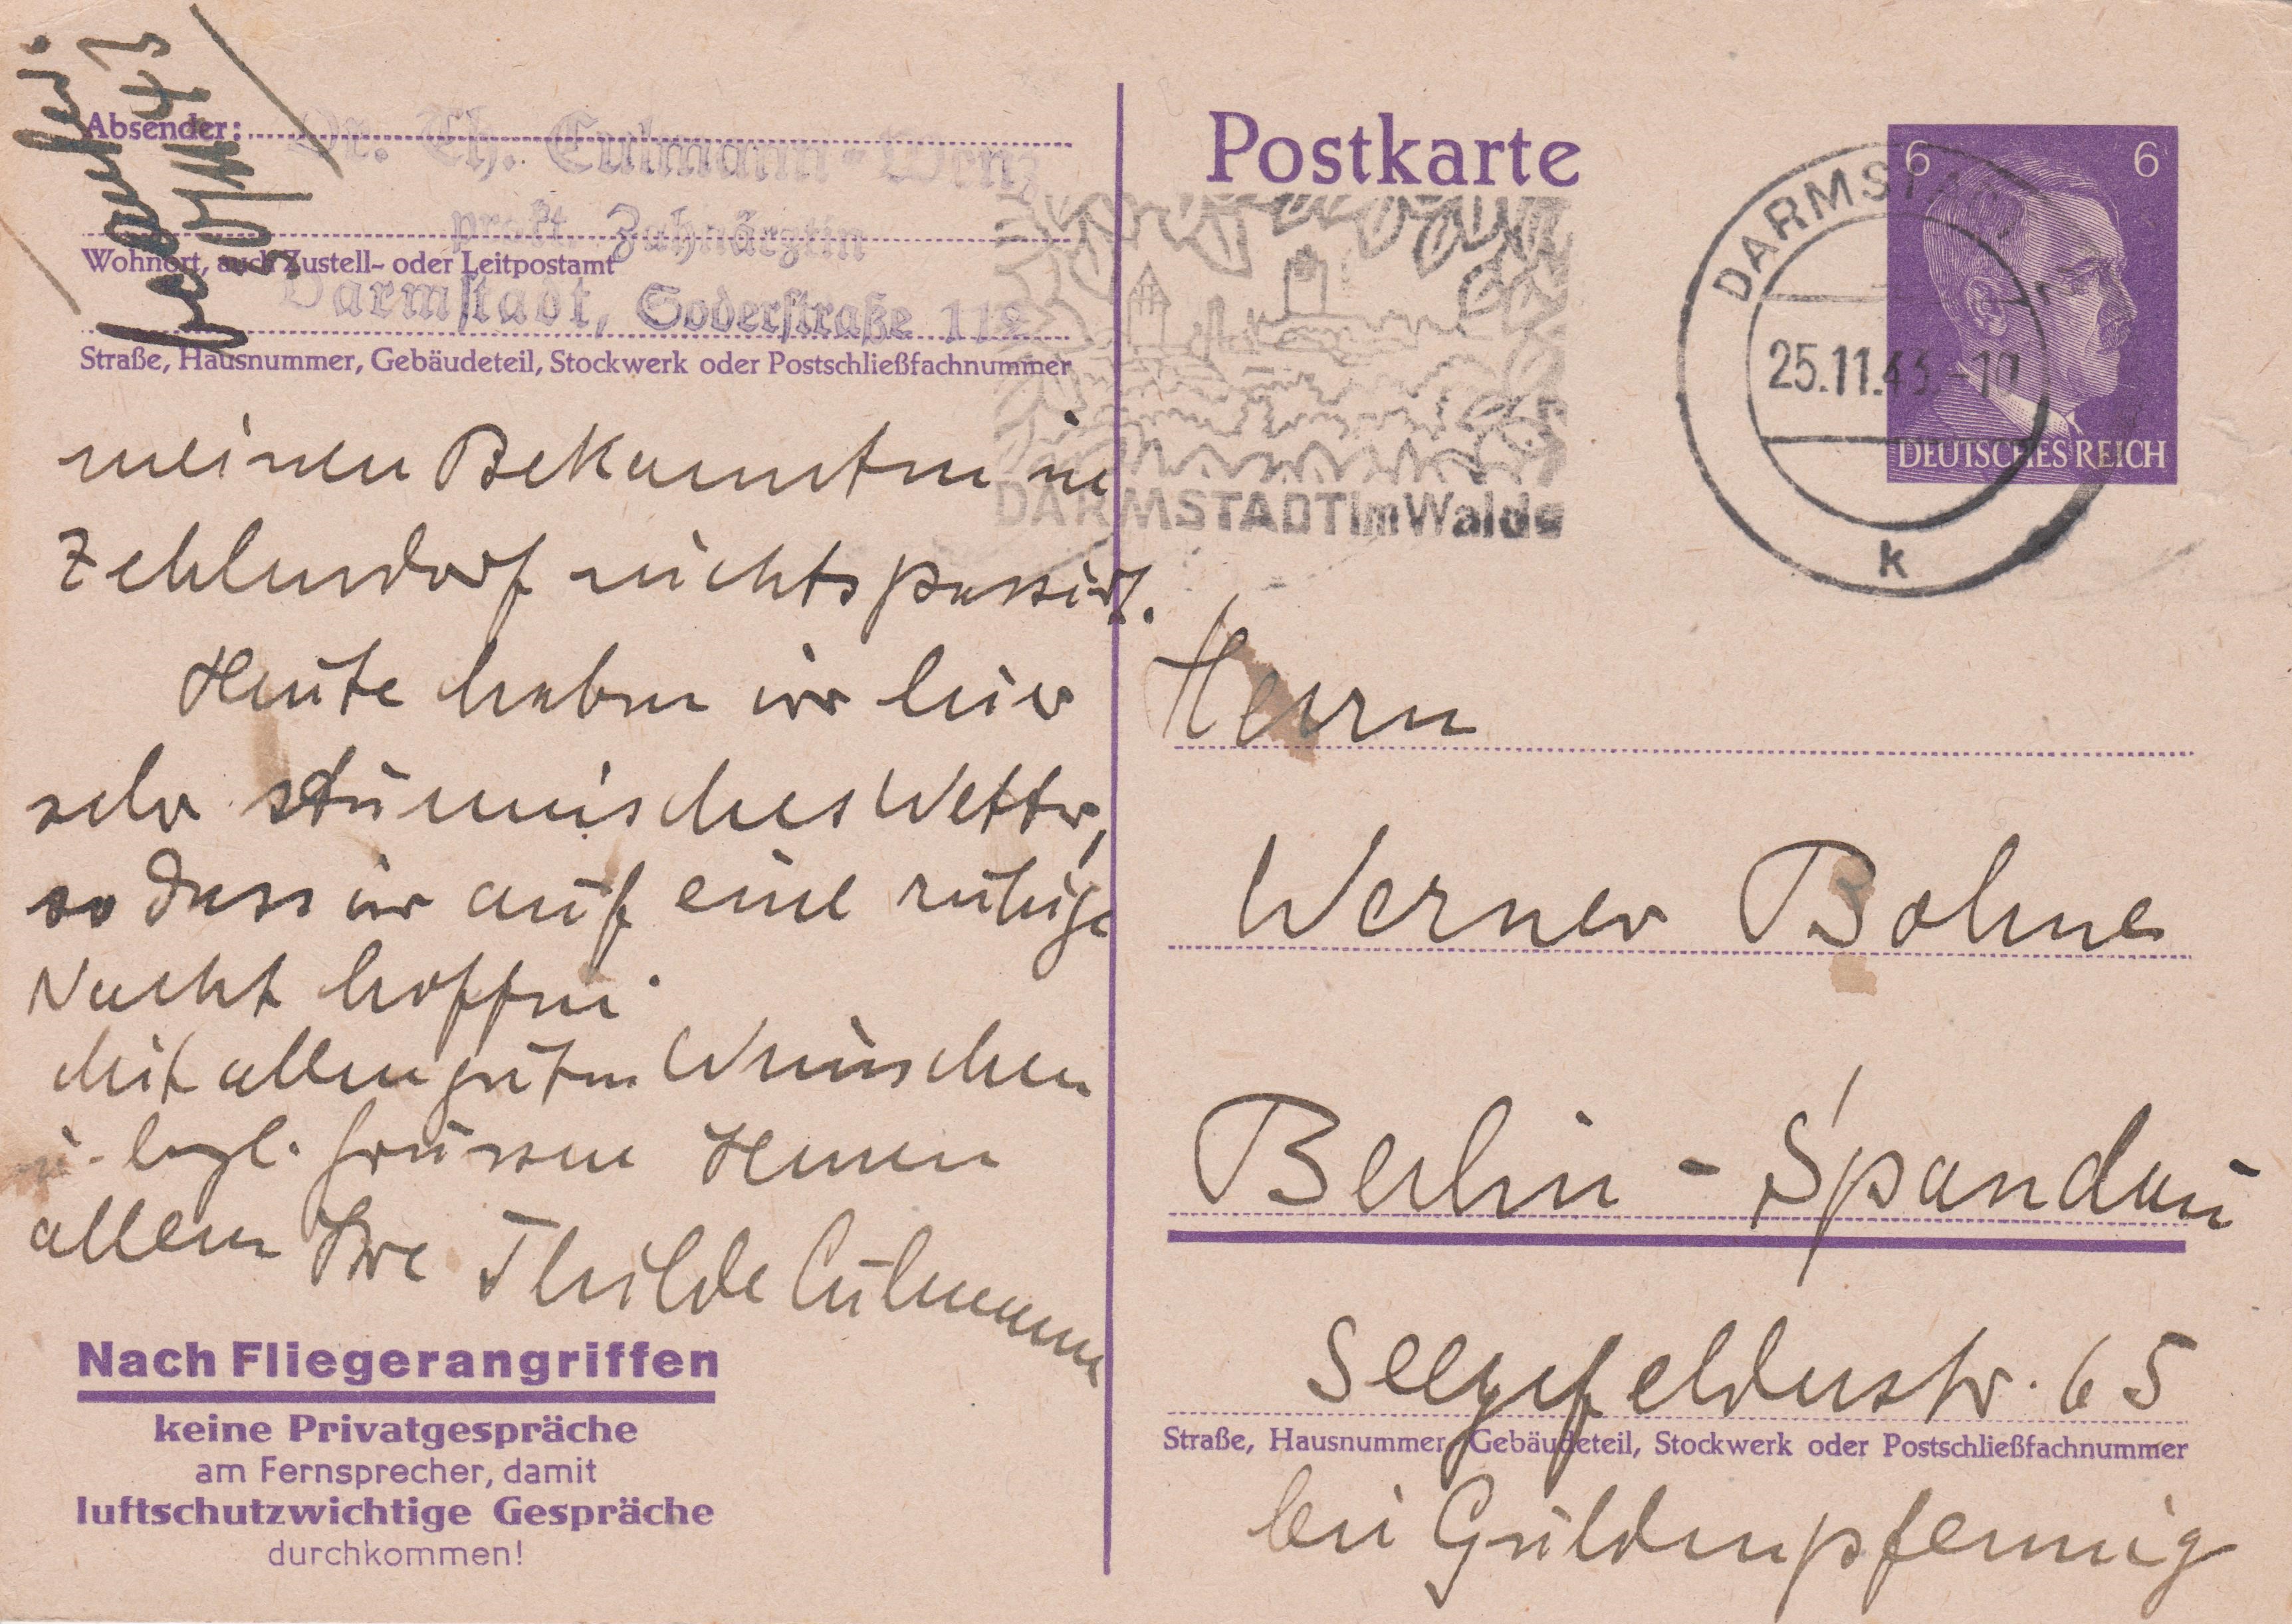 Absender:
Dr. Th. Culmann-Wenz
prakt. Zahnärztin
Wohnort, auch Zustell- oder Leitpostamt
Darmstadt, Soderstraße 112
Straße, Hausnummer, Gebäudeteil, Stockwerk oder Postschließfachnummer
meinen Bekannten in
Zehlendorf nichts passiert.
Heute haben wir hier
sehr stürmisches Wetter,
so dass wir auf eine ruhige
Nacht hoffen.
Mit allen guten Wünschen
u. herzl. Grüssen Ihnen
allen Ihre Thilde Culmann
Nach Fliegerangriffen
keine Privatgespräche
am Fernsprecher, damit
luftschutzwichtige Gespräche
durchkommen!
Postkarte
DARMSTADT im Walde
DARMSTADT
25.11.43.-10
k
6 6
DEUTSCHES REICH
Herrn
Werner Bohne
Berlin - Spandau
Seegefelderstr. 65
Straße, Hausnummer, Gebäudeteil, Stockwerk oder Postschließfachnummer
bei Güldenpfennig